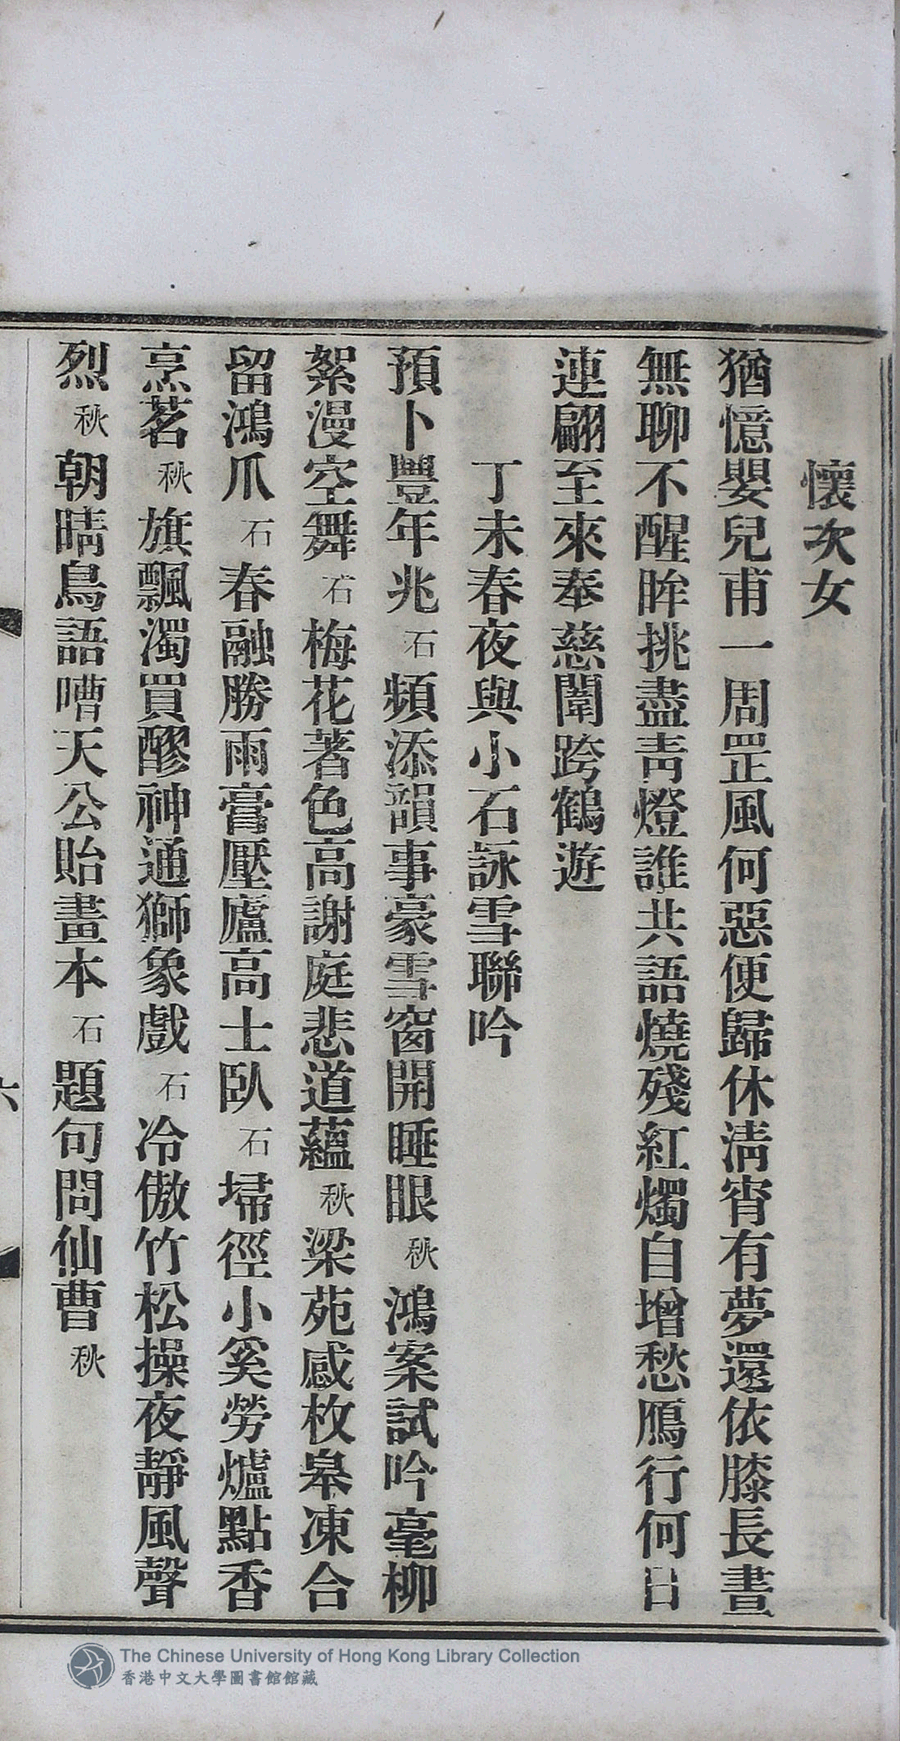 懷次女
猶憶嬰兒甫一周罡風何惡便歸休淸宵有夢還依膝長晝
無聊不醒眸挑盡靑燈誰共語燒殘紅燭自增愁鴈行何日
連翩至來奉慈闈跨鶴遊
丁未春夜與小石詠雪聯吟
預卜豐年兆石頻添韻事豪雪窗開睡眼秋鴻案試吟毫柳
絮漫空舞石梅花著色高謝庭悲道蘊秋梁苑感枚皋凍合
留鴻爪石春融勝雨膏壓廬高士臥石埽徑小奚勞爐點香
烹茗秋旗飄濁買醪神通獅象戲石冷傲竹松操夜靜風聲
烈秋朝晴鳥語嘈天公貽畫本石題句問仙曹秋
六
The Chinese University of Hong Kong Library Collection
香港中文大學圖書館館藏